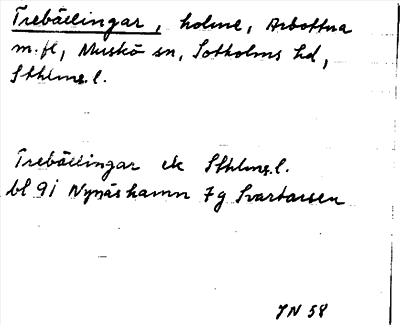 Trebäcklingar, holme, Arbottna
m.fl, Muskö sn, Sotholms hd,
Sthlms.l.
Trebäcklingar ek Sthlms.l.
bl 9i Nynäshamn 7g Svartarsen
JN 58